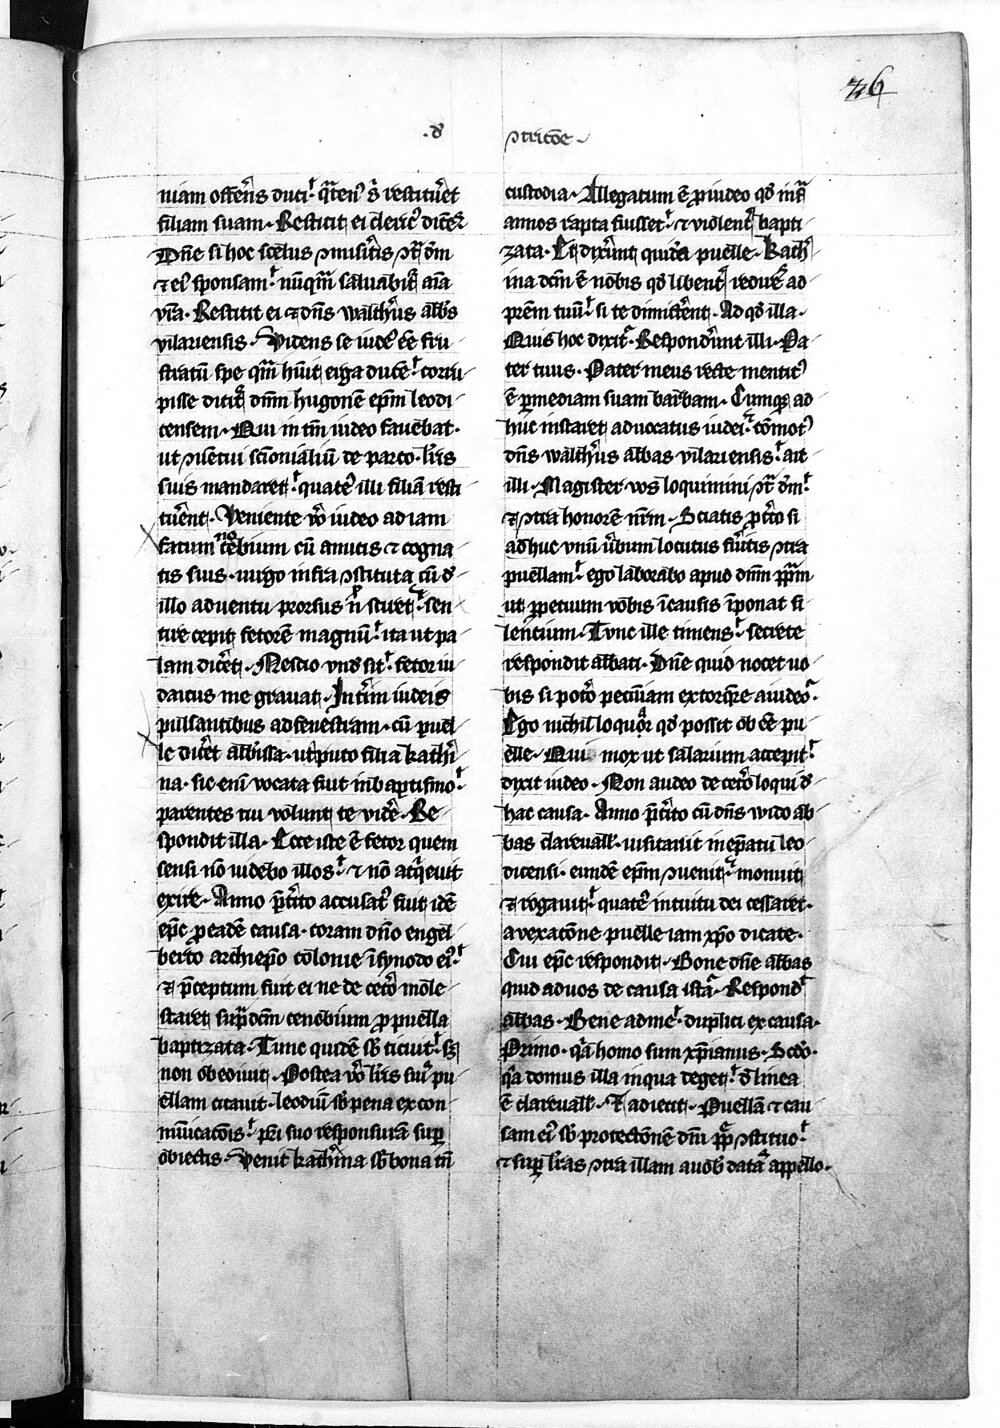 26
.d' ꝯtricōe.
niam offer̄s duci. q̄ten' s̄ restitu'et
filiam suam. Restitit ei cleric' dicēs
Dn̄e si hoc scelus ꝯmisit'is ꝯt̄ dm̄
⁊ ei' sponsam. nūq̄m saluabit' aīa
vr̄a. Restitit ei ⁊ dn̄s walth'us abb's
vilariensis. Videns se iude' e'e fru
stratū spe qm̄ hūit erga ducē. corru
pisse dicit' dnm̄ hugonē epm̄ leodi
censem. Qui in tm̄ iudeo fauebat.
ut ꝯuetui scīonialiū de parco. lr̄is
suis mandaret. quaten' illi filiā resti
tu'ent. Veniente v'o iudeo ad iam
fatum cebium cū amicis ⁊ cogna
tis suis. uirgo infra ꝯstituta cū d'
illo aduentu prorsus n̄ sciret. sen
tire cepit fetorē magnū. ita ut pa
lam dic'et. Nescio vnd' sit. fetor iu
daicus me grauat. Int'im iudeis
pulsantibus ad fenestram. cū puel
le dic'et abb'issa. ut puto filia kath'i
na. sic eni' vocata fuit in baptismo.
parentes tui volunt te vid'e. Re
spondit illa. Ecce iste ē fetor quem
sensi nō videbo illos. ⁊ nō acq'euit
exire. Anno p't'ito accusat' fuit idē
epc̄ p eadē causa. coram dn̄o engel
berto archiepo colonie ī synodo ei'.
⁊ p'ceptum fuit ei ne de cet'o mole
staret sup̄dcm̄ cenobium p puella
baptizata. Tunc quidē sb' ticuit. s;
non obediuit. Postea v'o lr̄is su' pu
ellam citauit. leodiū sb' pena excon
mūicacōis. pr̄i suo responsurā sup
obiectis. Venit kath'ina sb' bona tn̄
custodia. Allegatum ē p iudeo qd' infā
annos rapta fuisset. ⁊ violent' bapti
zata. Et dix'unt quidā puelle. kath'
ina dcm̄ ē nobis qd' libent' redires ad
prem̄ tuū. si te dimitt'ent. Ad qd' illa.
Quis hoc dixit. Respond'unt illi. Pa
ter tuus. Pater meus recte mentit'
ē p mediam suam barbam. Cumq; ad
huc instaret aduocatus iudei. cōmot'
dn̄s walth'us abbas vilariensis. ait
illi. Magister vos loquimini ꝯt̄ dm̄.
⁊ ꝯtra honorē vrm̄. Sciatis p c'to si
adhuc vnū v'bum locutus fu'itis ꝯtra
puellam. ego laborabo apud dnm̄ ppm̄
ut ppetuum vobis ī causis īponat si
lentium. Tunc ille timens. secrete
respondit abbati. Dn̄e quid nocet uo
bis si pot'o pecuniam extorq're a iudeo.
Ego nichil loquor qd' possit ob e'e pu
elle. Qui mox ut salarium accepit.
dixit iudeo. Non audeo de cet'o loqui d'
hac causa. Anno p't'ito cū dn̄s wido ab
bas clareuall' uisitauit in epatu leo
dicensi. eundē epm̄ ꝯuenit. monuit
⁊ rogauit. quaten' intuitu dei cessaret.
a vexacōne puelle iam xpo dicate.
Cui epc̄ respondit. Bone dn̄e abbas
quid ad vos de causa ista. Respond'
abbas. Bene ad me. duplici ex causa.
Primo. qa homo sum xpianus. Scd'o.
qa domus illa in qua deget. d' linea
ē clareuall'. Et adiecit. Puellā ⁊ cau
sam ei' sb' protectōnē dm̄ ppē ꝯstituo.
⁊ sup lr̄as ꝯtra illam a uob' datas appello.